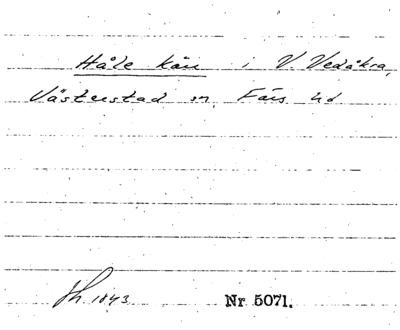 Håle kärr i V. Vedåkra,
Västerstad sn, Färs hd
1843 Nr 5071.